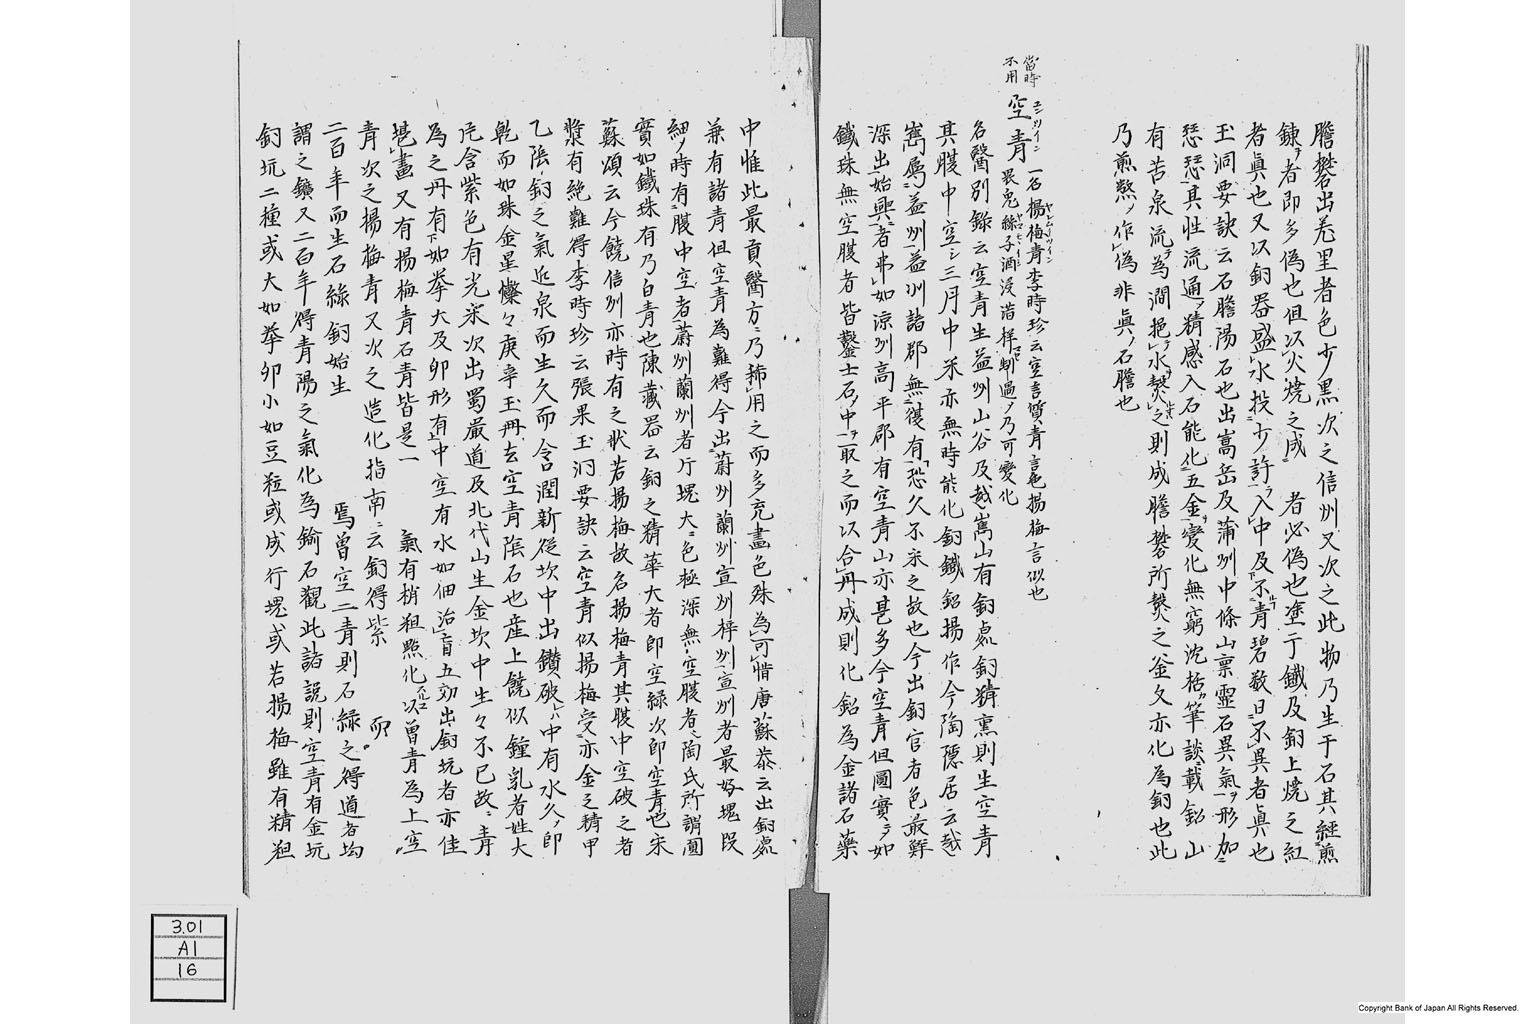 膽礬出羗里者色少黒次之信州又次之此物乃生于石其經煎
錬者即多偽也但以火燒之成　者必偽也塗于鐵及銅上燒之紅
者眞也又以銅器盛水投少許入中及不青碧敷日不異者眞也
玉洞要訣云石膽陽石也出嵩岳及蒲州中條山稟靈石異氣形加
瑟瑟其性流通精感入石能化五金變化無窮沈括筆談載鉛山
有苦泉流為澗挹水熬之則成膽礬所熬之釜久亦化為銅也此
乃煎熬作偽非眞石膽也
當時不用
空青 一名楊梅青李時珍云空言質青言色楊梅言似也
畏兎絲子酒浸 過乃可變化
名醫別錄云空青生益州山谷及越嶲山有銅處銅精熏則生空青
其腹中空三月中采亦無時能化銅鐵鉛揚作今陶隱居云越
嶲屬益州益州諸郡無復有恐久不采之故也今出銅官者色最鮮
深出始興者弗如涼州高平郡有空青山亦甚多今空青但圓實如
鐵珠無空腹者皆鑿土石中取之而以合丹成則化鉛為金諸石藥
中惟此最貴醫方乃稀用之而多充畫色殊為可惜唐蘇恭云出銅處
兼有諸青但空青為難得今出蔚州蘭州宣州梓州宣州者最好塊段
細時有腹中空者蔚州蘭州者片塊大色極深無空腹者陶氏所謂圓
實如鐵珠有乃白青也陳藏器云銅之精華大者即空綠次即空青也宋
蘇頌云今饒信州亦時有之狀若楊梅故名楊梅青其腹中空破之者
漿有絶難得李時珍云張果玉洞要訣云空青似楊梅受赤金之精甲
乙陰銅之氣近泉而生久而含潤新從坎中出鑽破中有水久即
乾而如珠金星燦々庚辛玉冊云空青陰石也産上饒似鐘乳者姓大
片含紫色有光采次出蜀嚴道及北代山生金坎中生々不已故青
為之丹有如拳大及卵形有中空有水如油治盲五効出銅坑者亦佳
堪畫又有楊梅青石青皆是一　氣有梢粗照化以曾青為上空
青次之楊梅青又次之造化指南云銅得紫　而
二百年而生石綠銅始生　焉曾空二青則石綠之得道者均
謂之鑛又二百年得青陽之氣化為鍮石觀此諸説則空青有金坑
銅坑二種或大如拳卵小如豆粒或成行塊或若楊梅雖有精粗
3.01
A1
16
Copyright Bank of Japan All Rights Reserved.